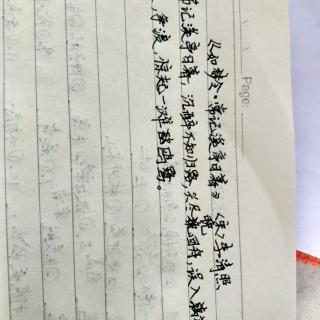 Page:
《如梦令·常记溪亭日暮》〈宋〉李清照
记溪亭日暮，沉醉不知归路，兴尽晚回舟，误入藕
，争渡，惊起一滩鸥鹭。